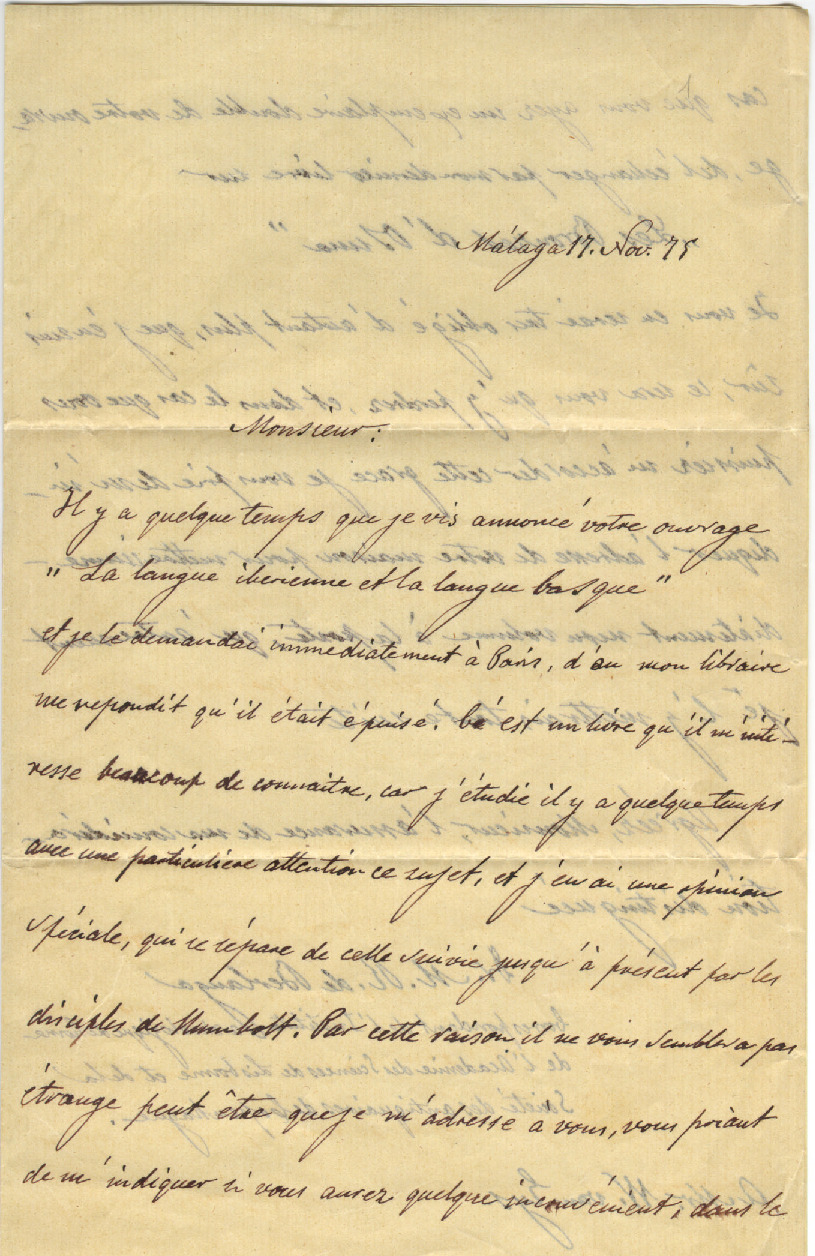 Málaga 17. Nov. 75
Monsieur:
Il y a quelque temps que je vis annoncé votre ouvrage
" La langue ibérienne et la langue basque "
et je le demandai immediatement à Paris, d'ou mon libraire
me repondit qu'il était épuisé. Cé est un livre qu'il m'inté-
resse beaucoup de connaitre, car j'étudie il y a quelque temps
avec une particuliere attention ce sujet, et j'en ai une opinion
spéciale, qui se sépare de celle suivie jusqu'à présent par les
disciples de Humbolt. Par cette raison il ne vous semblera pas
étrange peut être que je m'adresse a vous, vous priant
de m'indiquer si vous aurez quelque inconvénient, dans le